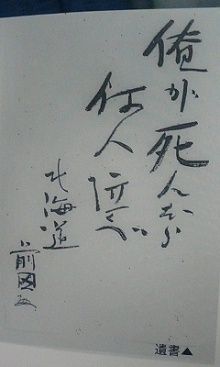 俺が死んだら
何人泣くべ
北海道
前田
遺書▲